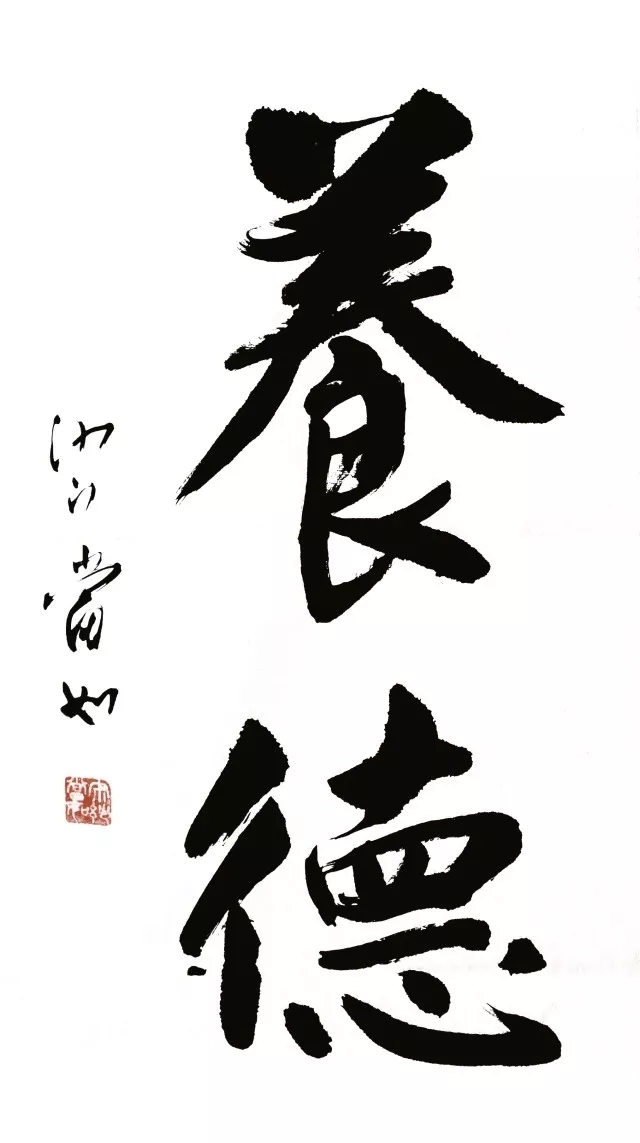 養德
沙门當如